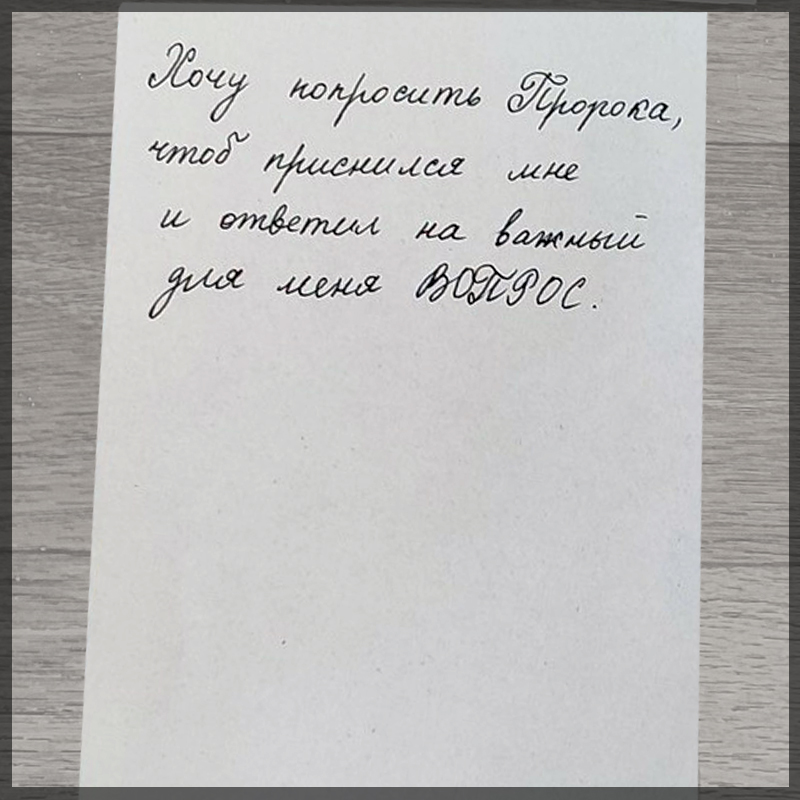 Хочу попросить Пророка,
чтоб приснился мне
и ответил на важный
для меня ВОПРОС.